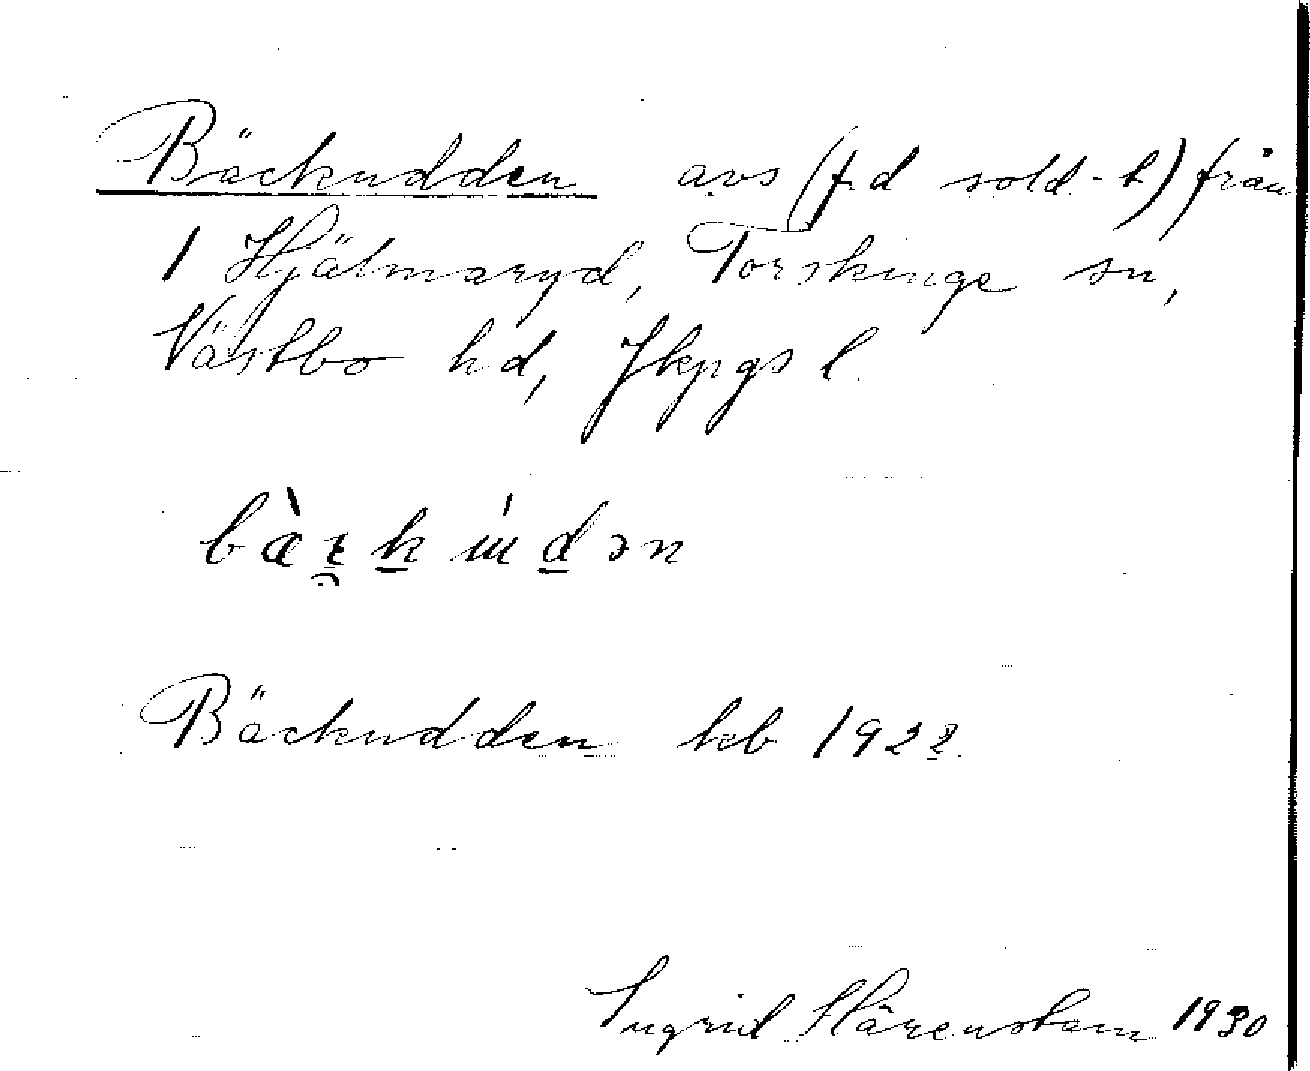 Bäckudden avs (f.d sold.-t) från
1 Hjälmaryd, Torskinge sn,
Västbo hd, Jkpgs l.
Bäckudden kb 1922.
Ingrid Härenstam 1930